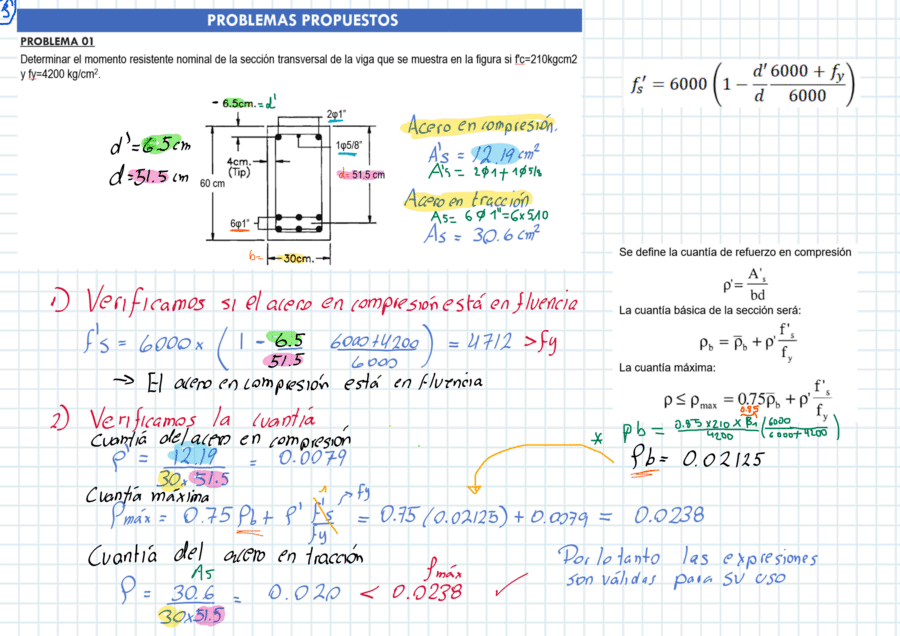 PROBLEMAS PROPUESTOS
PROBLEMA 01
Determinar el momento resistente nominal de la sección transversal de la viga que se muestra en la figura si f'c=210kgcm2
y fy=4200 kg/cm².
- 6.5cm. = d'
2φ1"
1φ5/8"
4cm.
(Tip)
60 cm
d= 51.5 cm
6φ1"
b= 30cm.
d' = 6.5 cm
d = 51.5 cm
Acero en compresión.
A's = 12.19 cm²
A's = 2φ1 + 1φ5/8
Acero en tracción
As = 6φ1" = 6x5.10
As = 30.6 cm²
f's = 6000 (1 - d'/d (6000 + fy)/6000)
Se define la cuantía de refuerzo en compresión
ρ' = A's/bd
La cuantía básica de la sección será:
ρb = ρ̄b + ρ' f's/fy
La cuantía máxima:
ρ ≤ ρmax = 0.75ρ̄b + ρ' f's/fy
0.85
* ρb = 0.85 x 210 x β1/4200 (6000/6000+4200)
ρb = 0.02125
1) Verificamos si el acero en compresión está en fluencia
f's = 6000 x (1 - 6.5/51.5 6000+4200/6000) = 4712 > fy
→ El acero en compresión está en fluencia
2) Verificamos la cuantía
Cuantía del acero en compresión
ρ' = 12.19/30x51.5 = 0.0079
Cuantía máxima
1 fy
ρmáx = 0.75 ρb + ρ' f's/fy = 0.75 (0.02125) + 0.0079 = 0.0238
Cuantía del acero en tracción
As ρmáx
ρ = 30.6/30x51.5 = 0.020 < 0.0238 ✓
Por lo tanto las expresiones
son válidas para su uso